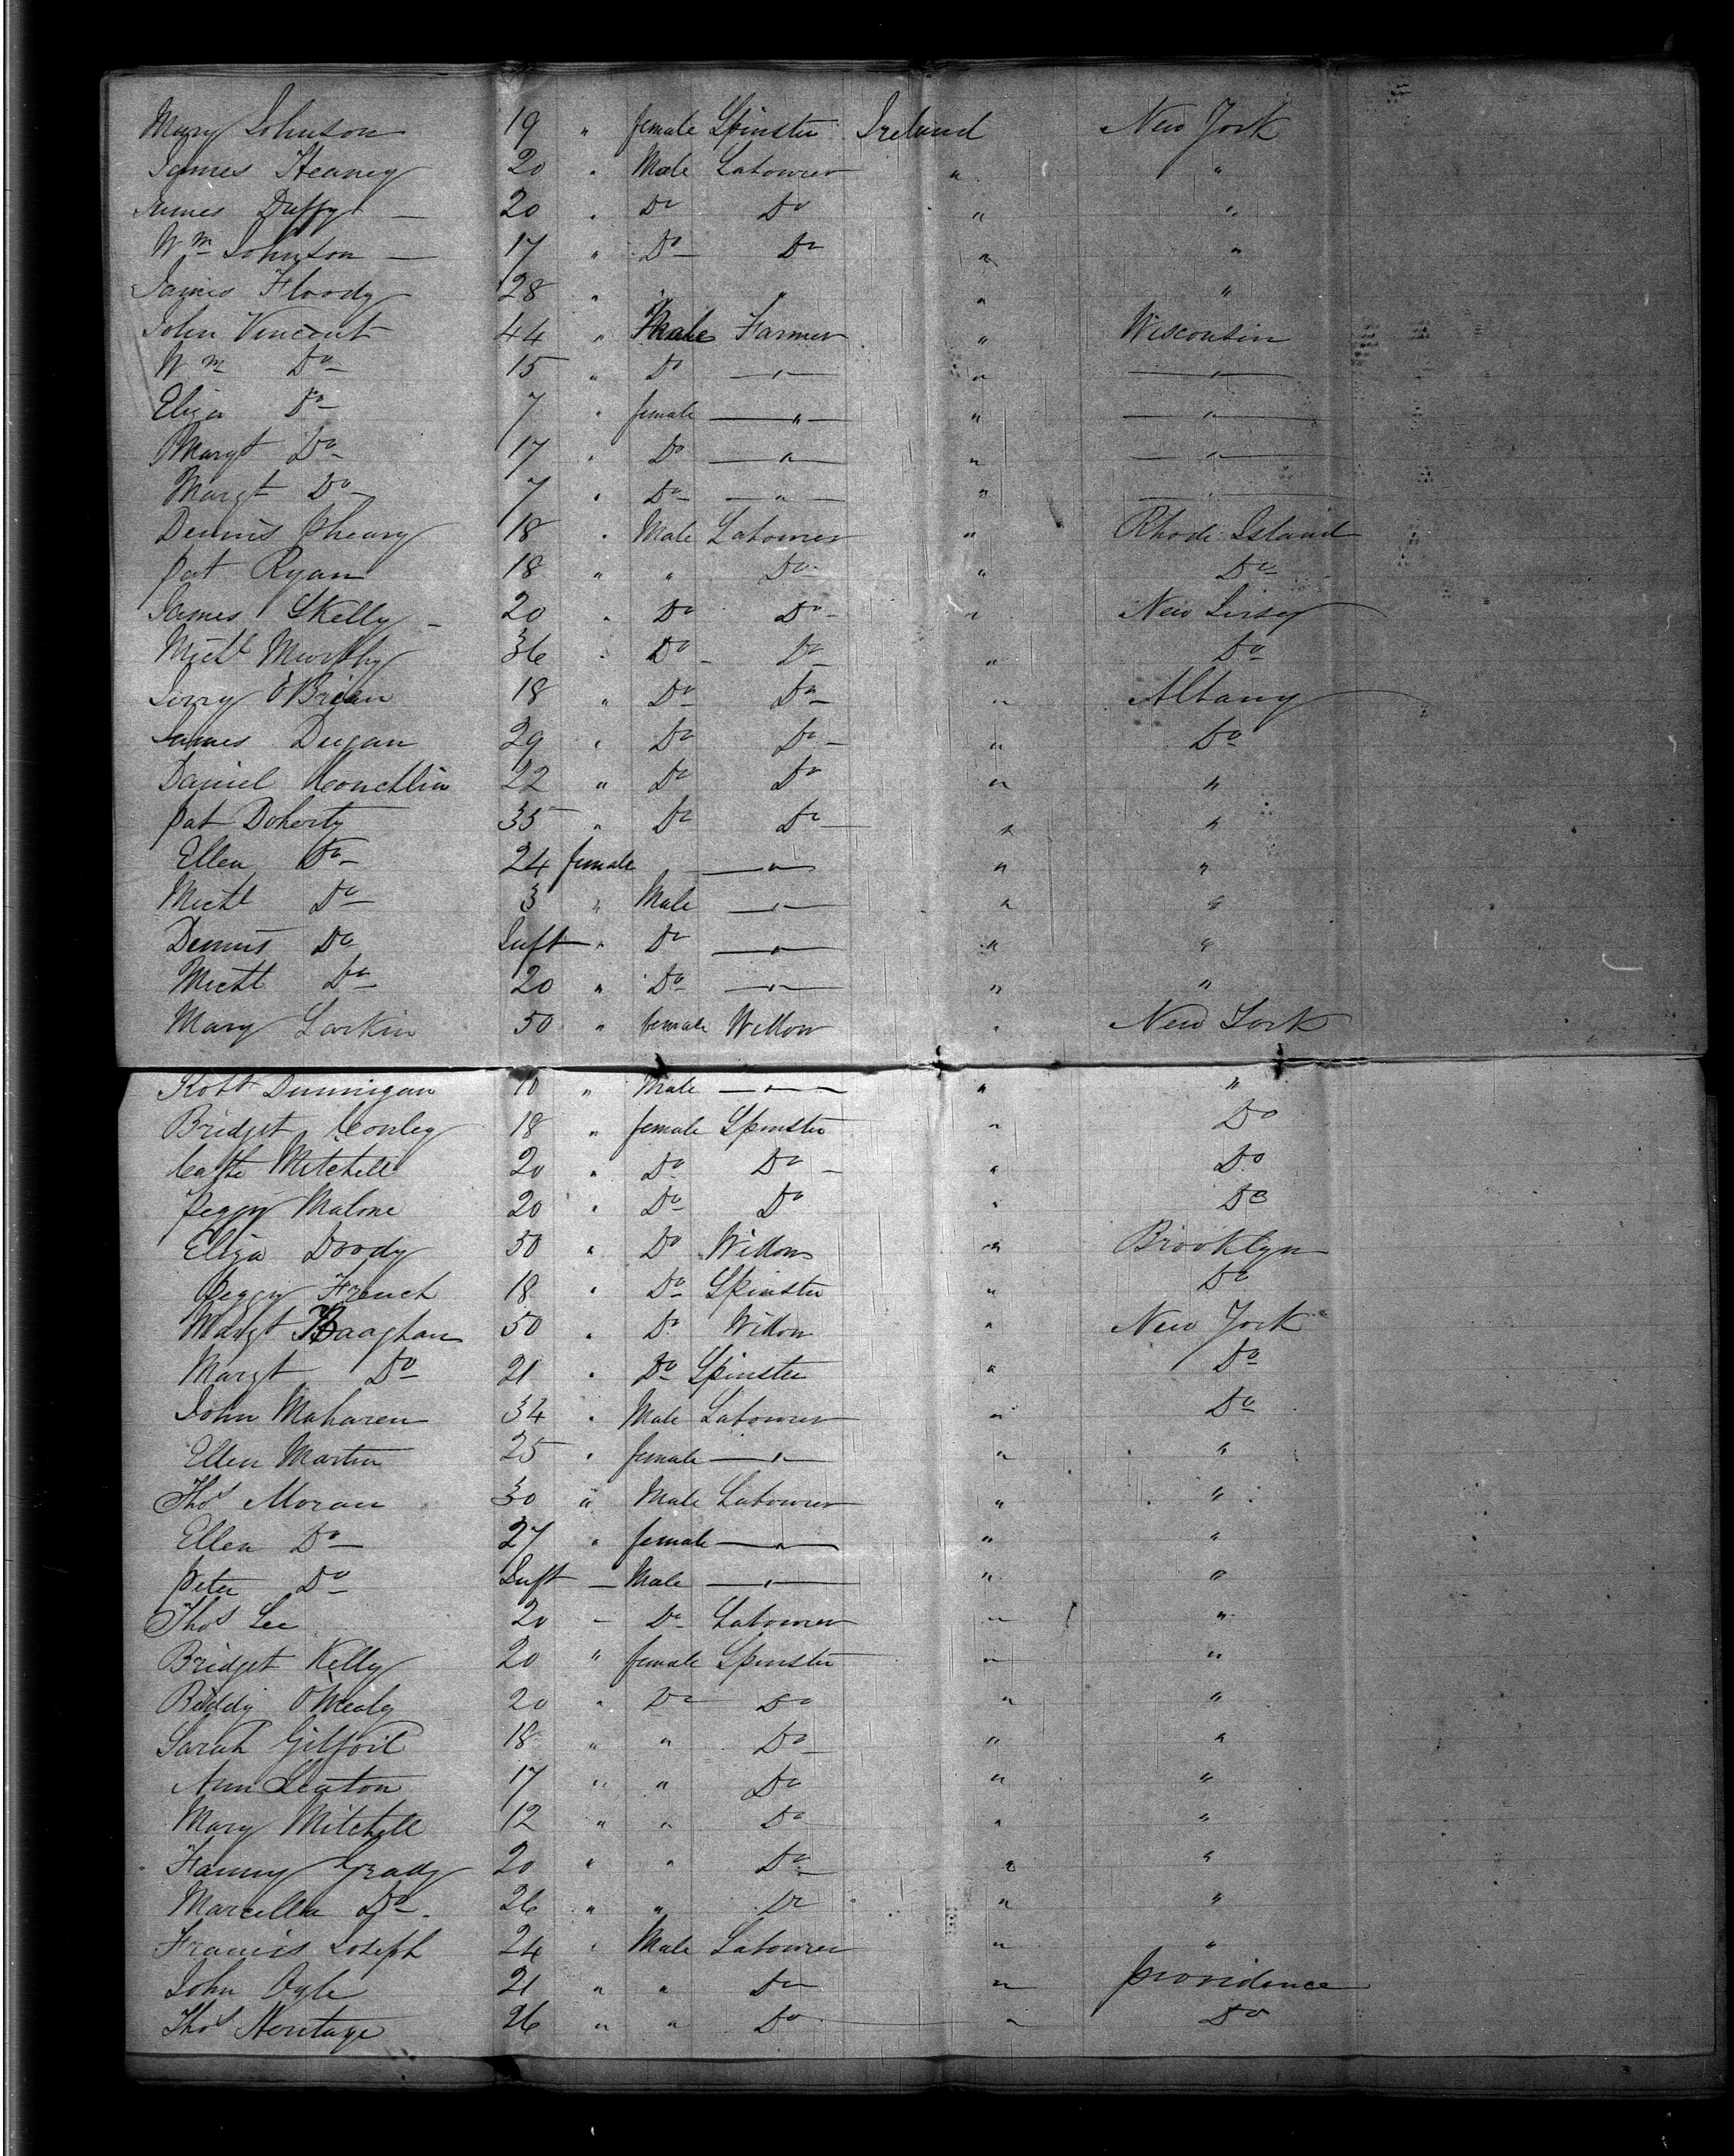 Mary Johnson 19 " female Spinster Ireland New York
James Heaney 20 " Male Labourer " "
James Duffy — 20 " Do Do " "
Wm Johnson — 17 " Do Do " "
James Floody 28 " " " " "
John Vincent 44 " Male Farmer " Wisconsin
Wm Do 15 " Do — " — " — " —
Eliza Do 7 " female — " — " — " —
Margt Do 17 " Do — " — " — " —
Margt Do 7 " Do — " — " — " —
Dennis 18 " Male Labourer " Rhode Island
Pat Ryan 18 " " Do " Do
James Skelly 20 " Do Do " New Jersey
Michl Murphy 36 " Do Do " Do
Jerry O'Brien 18 " Do Do " Albany
James Dugan 29 " Do Do " Do
Daniel Conchlin 22 " Do Do " "
Pat Doherty 35 " Do Do " "
Ellen Do 24 female — " — " "
Michl Do 3 " Male — " — " "
Dennis Do Inft " Do — " — " "
Michl Do 20 " Do — " — " "
Mary Larkin 50 " female Widow " New York
Robt Dunnigan 10 " Male — " — " "
Bridget Conley 18 " female Spinster " Do
Cathe Mitchell 20 " Do Do " Do
Peggy Malone 20 " Do Do " Do
Eliza Doody 50 " Do Widow " Brooklyn
Peggy French 18 " Do Spinster " Do
Margt 50 " Do Widow " New York
Margt Do 21 " Do Spinster " Do
John Maharen 34 " Male Labourer " Do
Ellen Martin 25 " female — " — " "
Thos Moran 30 " Male Labourer " "
Ellen Do 27 " female — " — " "
Peter Do Inft — Male — " — " "
Thos Lee 20 — Do Labourer " "
Bridget Kelly 20 " female Spinster " "
Biddy O'Mealy 20 " Do Do " "
Sarah Gilfoil 18 " " Do " "
Ann Leaton 17 " " Do " "
Mary Mitchell 12 " " Do " "
Fanny Grady 20 " " Do " "
Marcella Do 26 " " Do " "
Francis Joseph 24 " Male Labourer " "
John Ogle 21 " " Do " Providence
Thos Heritage 26 " " Do " Do